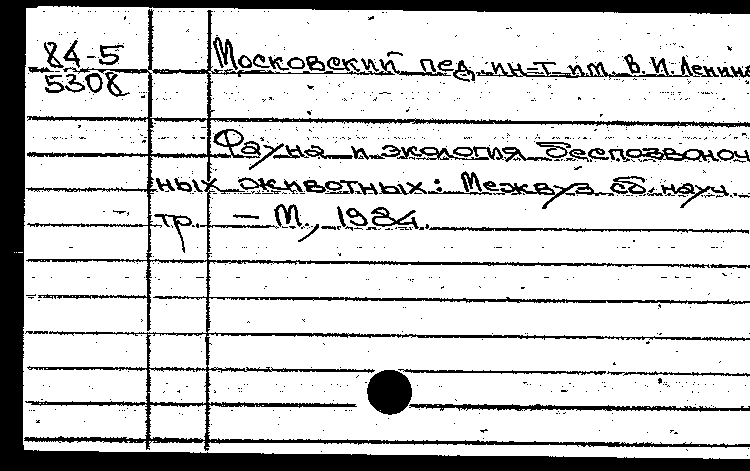 84-5
5308
Московский пед. ин-т им. В.И. Ленина
Фауна и экология беспозвоноч
ных животных: Межвуз сб. науч.
тр. — М., 1984.